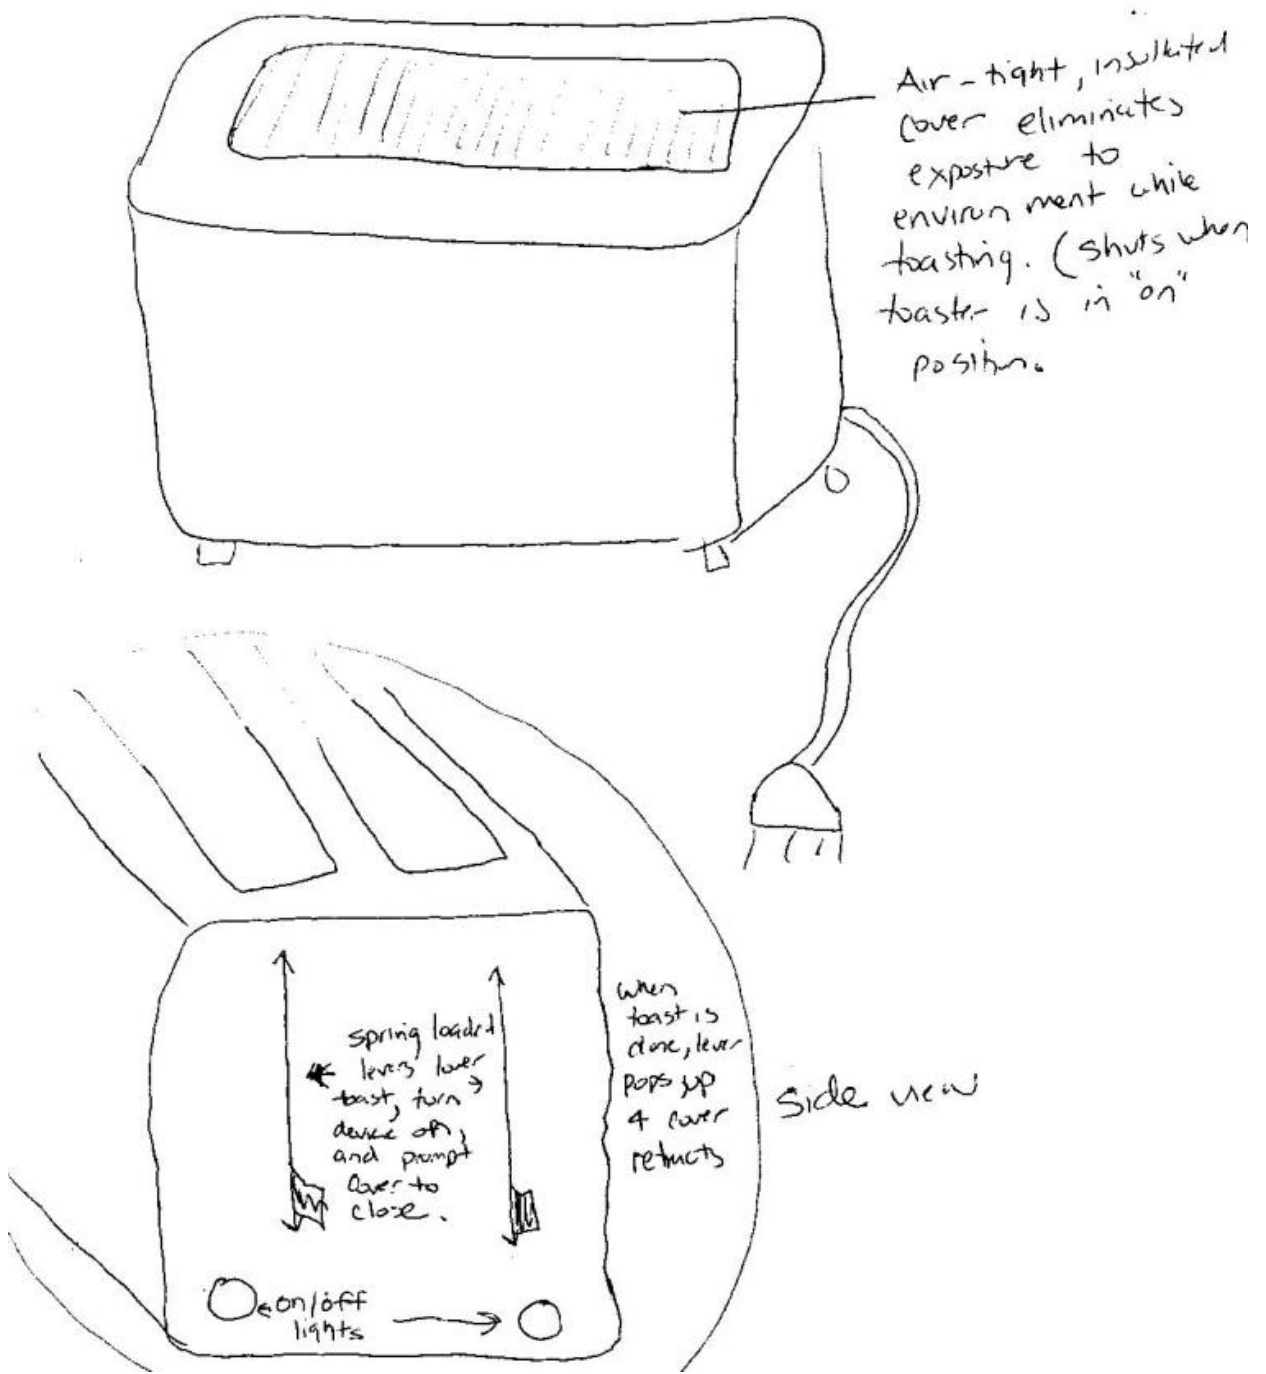 Air-tight, insulated
cover eliminates
exposure to
environment while
toasting. (Shuts when
toaster is in "on"
position.
spring loaded
levers lower
toast, turn
device on,
and prompt
cover to
close.
when
toast is
done, lever
pops up
& cover
retracts
side view
on/off
lights